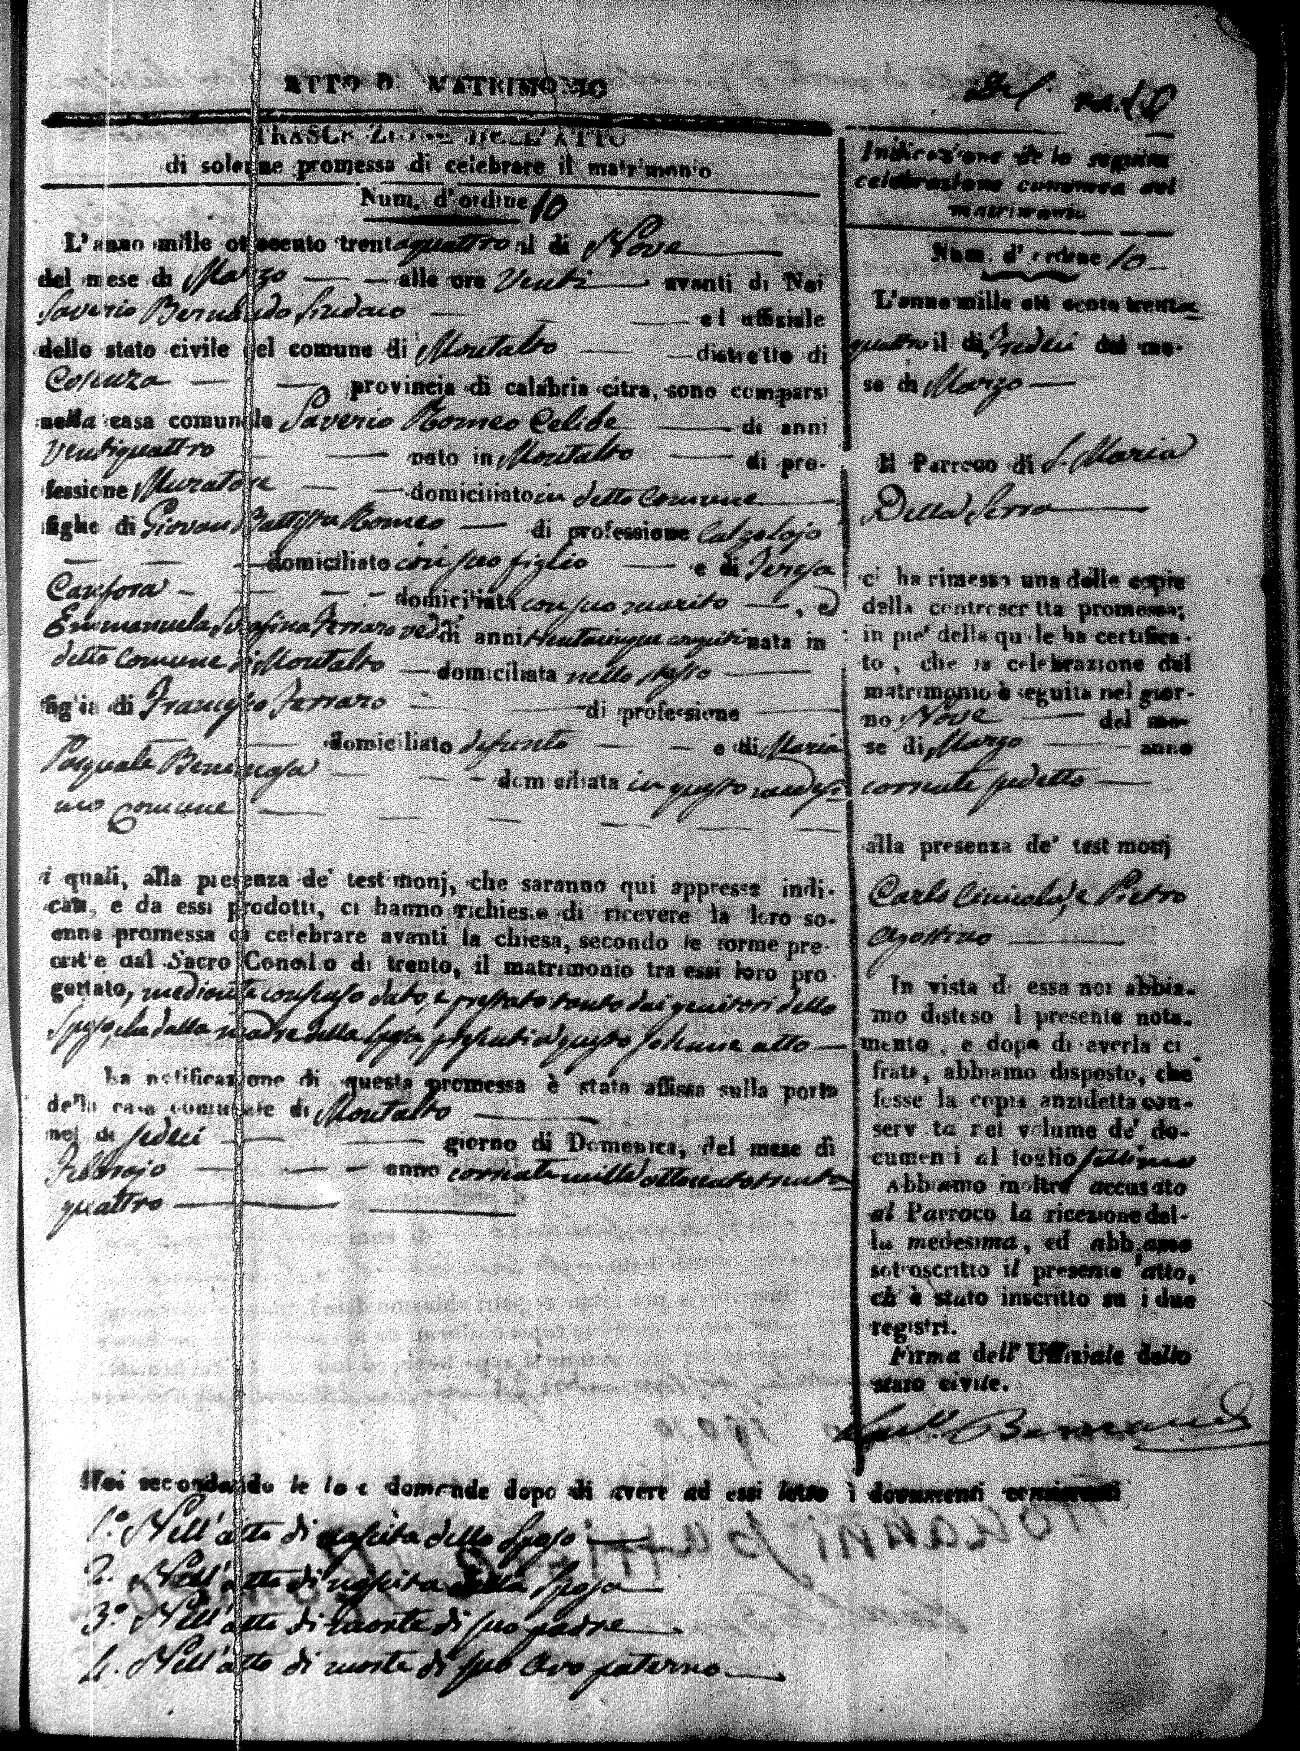 ATTO DI MATRIMONIO
TRASCRIZIONE DELL'ATTO
di solenne promessa di celebrare il matrimonio
Num. d'ordine 10
L'anno mille ottocento trentaquattro il di Nove
del mese di Marzo alle ore Venti avanti di Noi
Saverio Bernardo Sindaco ed uffiziale
dello stato civile del comune di Montalto distretto di
Cosenza provincia di calabria citra, sono comparsi
nella casa comunale Saverio Romeo Celibe di anni
Ventiquattro nato in Montalto di pro-
fessione Muratore domiciliato in detto Comune
figlio di Giovan Battista Romeo di professione Calzolajo
domiciliato con suo figlio e di Teresa
Canfora domiciliata con suo marito, ed
Emmanuela Serafina Ferraro di anni nata in
detto Comune di Montalto domiciliata nello stesso
figlia di Francesco Ferraro di professione
domiciliato defunto e di Maria
Pasquale domiciliata in questo medesi-
mo Comune
i quali, alla presenza de' testimonj, che saranno qui appresso indi-
cati, e da essi prodotti, ci hanno richiesto di ricevere la loro so-
enne promessa di celebrare avanti la chiesa, secondo le forme pre-
critte dal Sacro Concilio di trento, il matrimonio tra essi loro pro
gettato, mediante consenso dato, e prestato tanto dai genitori dello
Sposo, che dalla madre della Sposa, presenti a questo solenne atto
La notificazione di questa promessa è stata affissa sulla porta
della casa comunale di Montalto
nel di sedeci giorno di Domenica, del mese di
Febrajo anno corrente mille ottocento trenta
quattro
Noi secondando le loro domande dopo di avere ad essi letto i documenti
1.° Nell'atto di nascita dello Sposo
2. Nell'atto di nascita della Sposa
3.° Nell'atto di morte di suo padre
4. Nell'atto di morte di suo Avo paterno
Indicazione della seguita
celebrazione canonica del
matrimonio
Num. d'ordine 10
L'anno mille ottocento trenta
quattro il di Tredici del me-
se di Marzo
Il Parroco di S. Maria
Della Serra
ci ha rimessa una delle copie
della controscritta promessa;
in piè della quale ha certifica-
to, che la celebrazione del
matrimonio è seguita nel gior-
no Nove del me-
se di Marzo anno
corrente sudetto
alla presenza de' testimonj
Carlo e Pietro
Agostino
In vista di essa noi abbia-
mo disteso il presente nota-
mento, e dopo di averla ci
frata, abbiamo disposto, che
fosse la copia anzidetta con-
servata nel volume de' do-
cumenti al foglio settimo
Abbiamo inoltre accusato
al Parroco la ricezione del-
la medesima, ed abbiamo
sottoscritto il presente atto,
ch'è stato inscritto su i due
registri.
Firma dell'Uffiziale dello
stato civile.